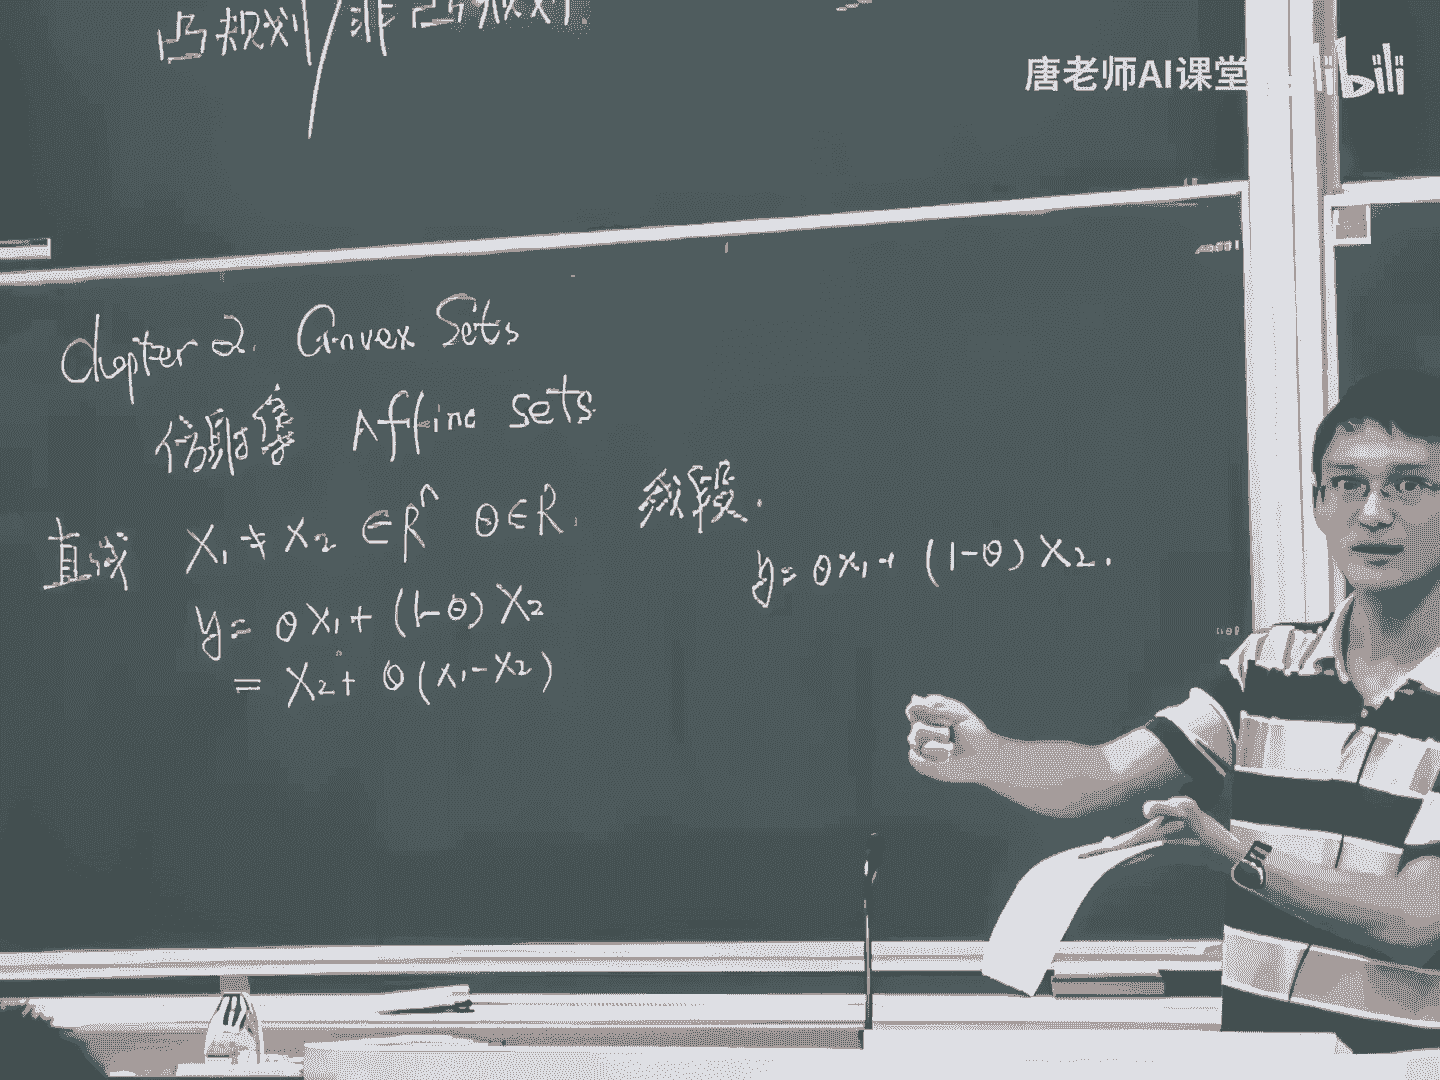 凸规划/非凸规划.
唐老师AI课堂 bilibili
Chapter 2. Convex Sets
仿射集 Affine sets
直线 X₁ ≠ X₂ ∈ Rⁿ θ ∈ R, 线段.
y = θX₁ + (1-θ) X₂
= X₂ + θ(X₁-X₂)
y = θX₁ + (1-θ) X₂.